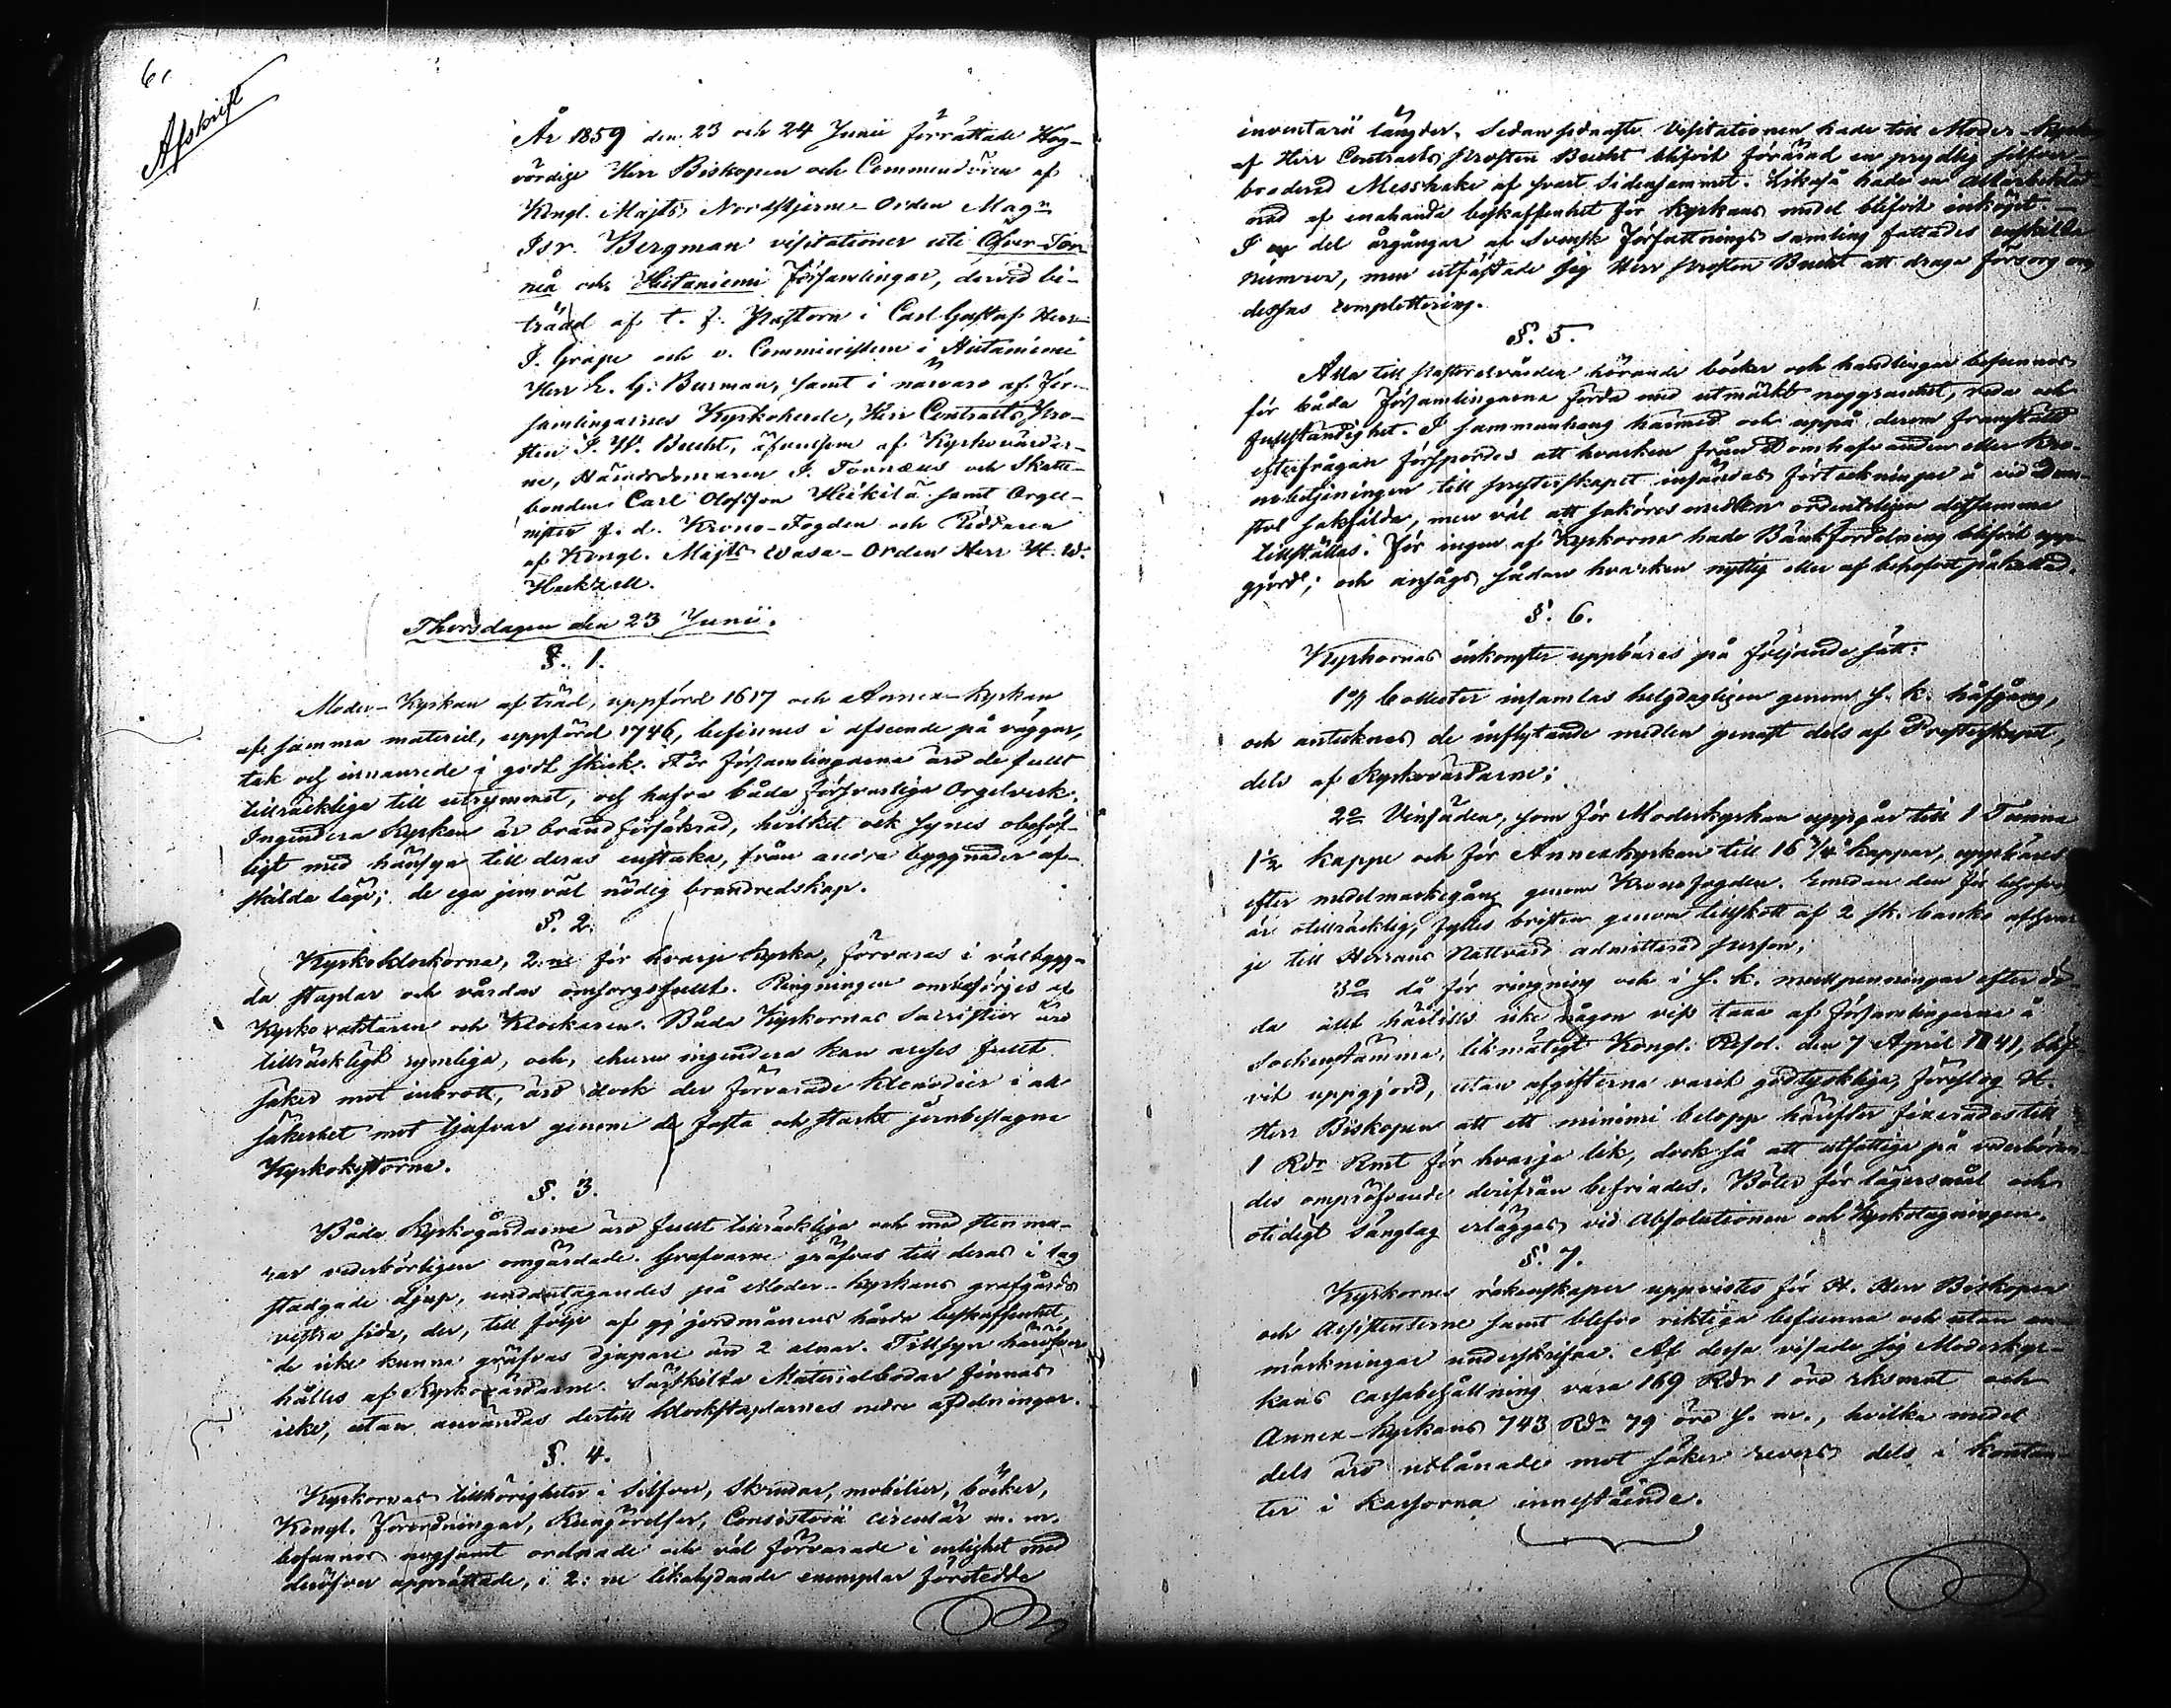 61
Afskrift
År 1859 den 23 och 24 Junii förrättade Hög-
vördige Herr Biskopen och Commendören af
Kongl. Majts Nordstjerne-Orden Magn
Isr. Bergman visitationer uti Öfver-Tor
neå och Hietaniemi församlingar, dervid bi-
trädd af t. f. Pastorn i Carl Gustaf Herr
I. Grape och v. Comministern i Hietaniemi
Herr L. G. Burman, samt i närvaro af För-
samlingarnes Kyrkoherde, Herr Contracts Pro-
sten J. W. Bucht, äfvensom af Kyrkovärdar-
ne, Nämndemannen I. Tornæus och Skatte-
bonden Carl Olofsson Heikilä samt Orgel-
nisten f. d. Krono-Fogden och Riddaren
af Kongl. Majts Wasa-Orden Herr H. W.
Hackzell.
Thorsdagen den 23 Junii.
§. 1.
Moder-Kyrkan af träd, uppförd 1617 och Annex-Kyrkan
af samma materiel, uppförd 1746, befinnes i afseende på väggar,
tak och innanrede i godt skick. För församlingarna äro de fullt
tillräckliga till utrymmet, och hafva båda försvarliga Orgelverk.
Ingendera Kyrkan är brandförsäkrad, hvilket ock synes obehöf-
ligt med hänsyn till deras enstaka, från andra byggnader af-
skilda läge; de ega jemväl nödig brandredskap.
§. 2.
Kyrkoklockorna, 2:ne för hvarje Kyrka, förvaras i välbygg-
da staplar och vårdas omsorgsfullt. Ringningen ombesörjes af
Kyrkovaktaren och Klockaren. Båda Kyrkornas Sacristior äro
tillräckligt rymliga, och, ehuru ingendera kan anses fullt
säker mot inbrott, äro dock der förvarade klenodier i all
säkerhet mot tjufvar genom de fasta och starkt jernbeslagne
Kyrkokistorne.
§. 3.
Båda Kyrkogårdarne äro fullt tillräckliga och med stenmu-
rar vederbörligen omgärdade. Grafvarne gräfvas till deras i lag
stadgade djup, undantagandes på Moder-Kyrkans grafgårds
vestra sida, der, till följe af jordmånens hårda beskaffenhet,
de icke kunna gräfvas djupare än 2 alnar. Tillsyn häröfver
hålles af Kyrkovärdarne. Särskilda Materialbodar finnas
icke, utan användas dertill klockstaplarnes nedre afdelningar.
§. 4.
Kyrkornas tillhörigheter i Silfver, Skrudar, mobilier, böcker,
Kongl. Förordningar, Kungörelser, Consistorii circulär m. m.
befunnos nogsamt ordnade och väl förvarade i enlighet med
deröfver upprättade, i 2:ne likalydande exemplar företedde
inventarii längder. Sedan sednaste Visitationen hade till Moder-Kyrkan
af Herr Contracts Prosten Bucht blifvit förärad en prydlig silfver-
broderad Messhake af svart Sidensammet. Likaså hade en
af enahanda beskaffenhet för Kyrkans medel blifvit inköpt.-
I en del årgångar af Svensk Författnings samling fattades enskilda
numror, men utfäste sig Herr Prosten Bucht att draga försorg om
dessas complettering.
§. 5.
Alla till Pastorsvården hörande böcker och handlingar befunnos
för båda Församlingarna förda med utmärkt noggranhet, reda och
fullständighet. I sammanhang härmed och uppå derom framställd
efterfrågan försporдes att hvarken från Domhafvanden eller Kro-
nobetjeningen till Presterskapet insändas förteckningar å vid Dom-
stol sakfälde, men väl att saköres medlen ordentligen detsamma
tillställas. För ingen af Kyrkorna hade Bänkfördelning blifvit upp-
gjord; och ansågs sådan hvarken nyttig eller af behofvet påkallad.
§. 6.
Kyrkornas inkomster uppbäras på följande sätt:
1o/ Collecter insamlas helgdagligen genom s. k. håfgång,
och antecknas de inflytande medlen genast dels af Presterskapet,
dels af Kyrkovärdarne;
2o Vinsäden, som för Moderkyrkan uppgår till 1 Tunna
1½ kappe och för Annexkyrkan till 16 3/4 kappar, uppbäres
efter medelmarkegång genom Kronofogden. Emedan den för behofvet
är otillräcklig, fylles bristen genom tillskott af 2 sk. banko af hvar
je till Herrans Nattvard admitterad person;
3o då för ringning och i s. k. mullpenningar efter dö-
da allt härtills icke någon viss taxa af församlingarna å
Sockenstämma, likmätigt Kongl. Resol. den 7 April 1841, blif
vit uppgjord, utan afgifterna varit godtyckliga, föreslog H.
Herr Biskopen att ett minimi belopp härefter fixerades till
1 Rdr Rmt för hvarje lik, dock så att utfattige på vederböran-
des ompröfvande derifrån befriades. Böter för lägersmål och
otidigt sänglag erlägges vid Absolutionen och Kyrkotagningen.
§. 7.
Kyrkornes räkenskaper uppvistes för H. Herr Biskopen
och Assistenterne samt blefvo riktiga befunna och utan an-
märkningar underskrifna. Af dessa visade sig Moderkyr-
kans cassabehållning vara 169 Rdr 1 öre rksmt och
Annex-Kyrkans 743 Rdr 79 öre s. m., hvilka medel
dels äro utlånade mot säker revers dels i kontan-
ter i Kassorna innestående.